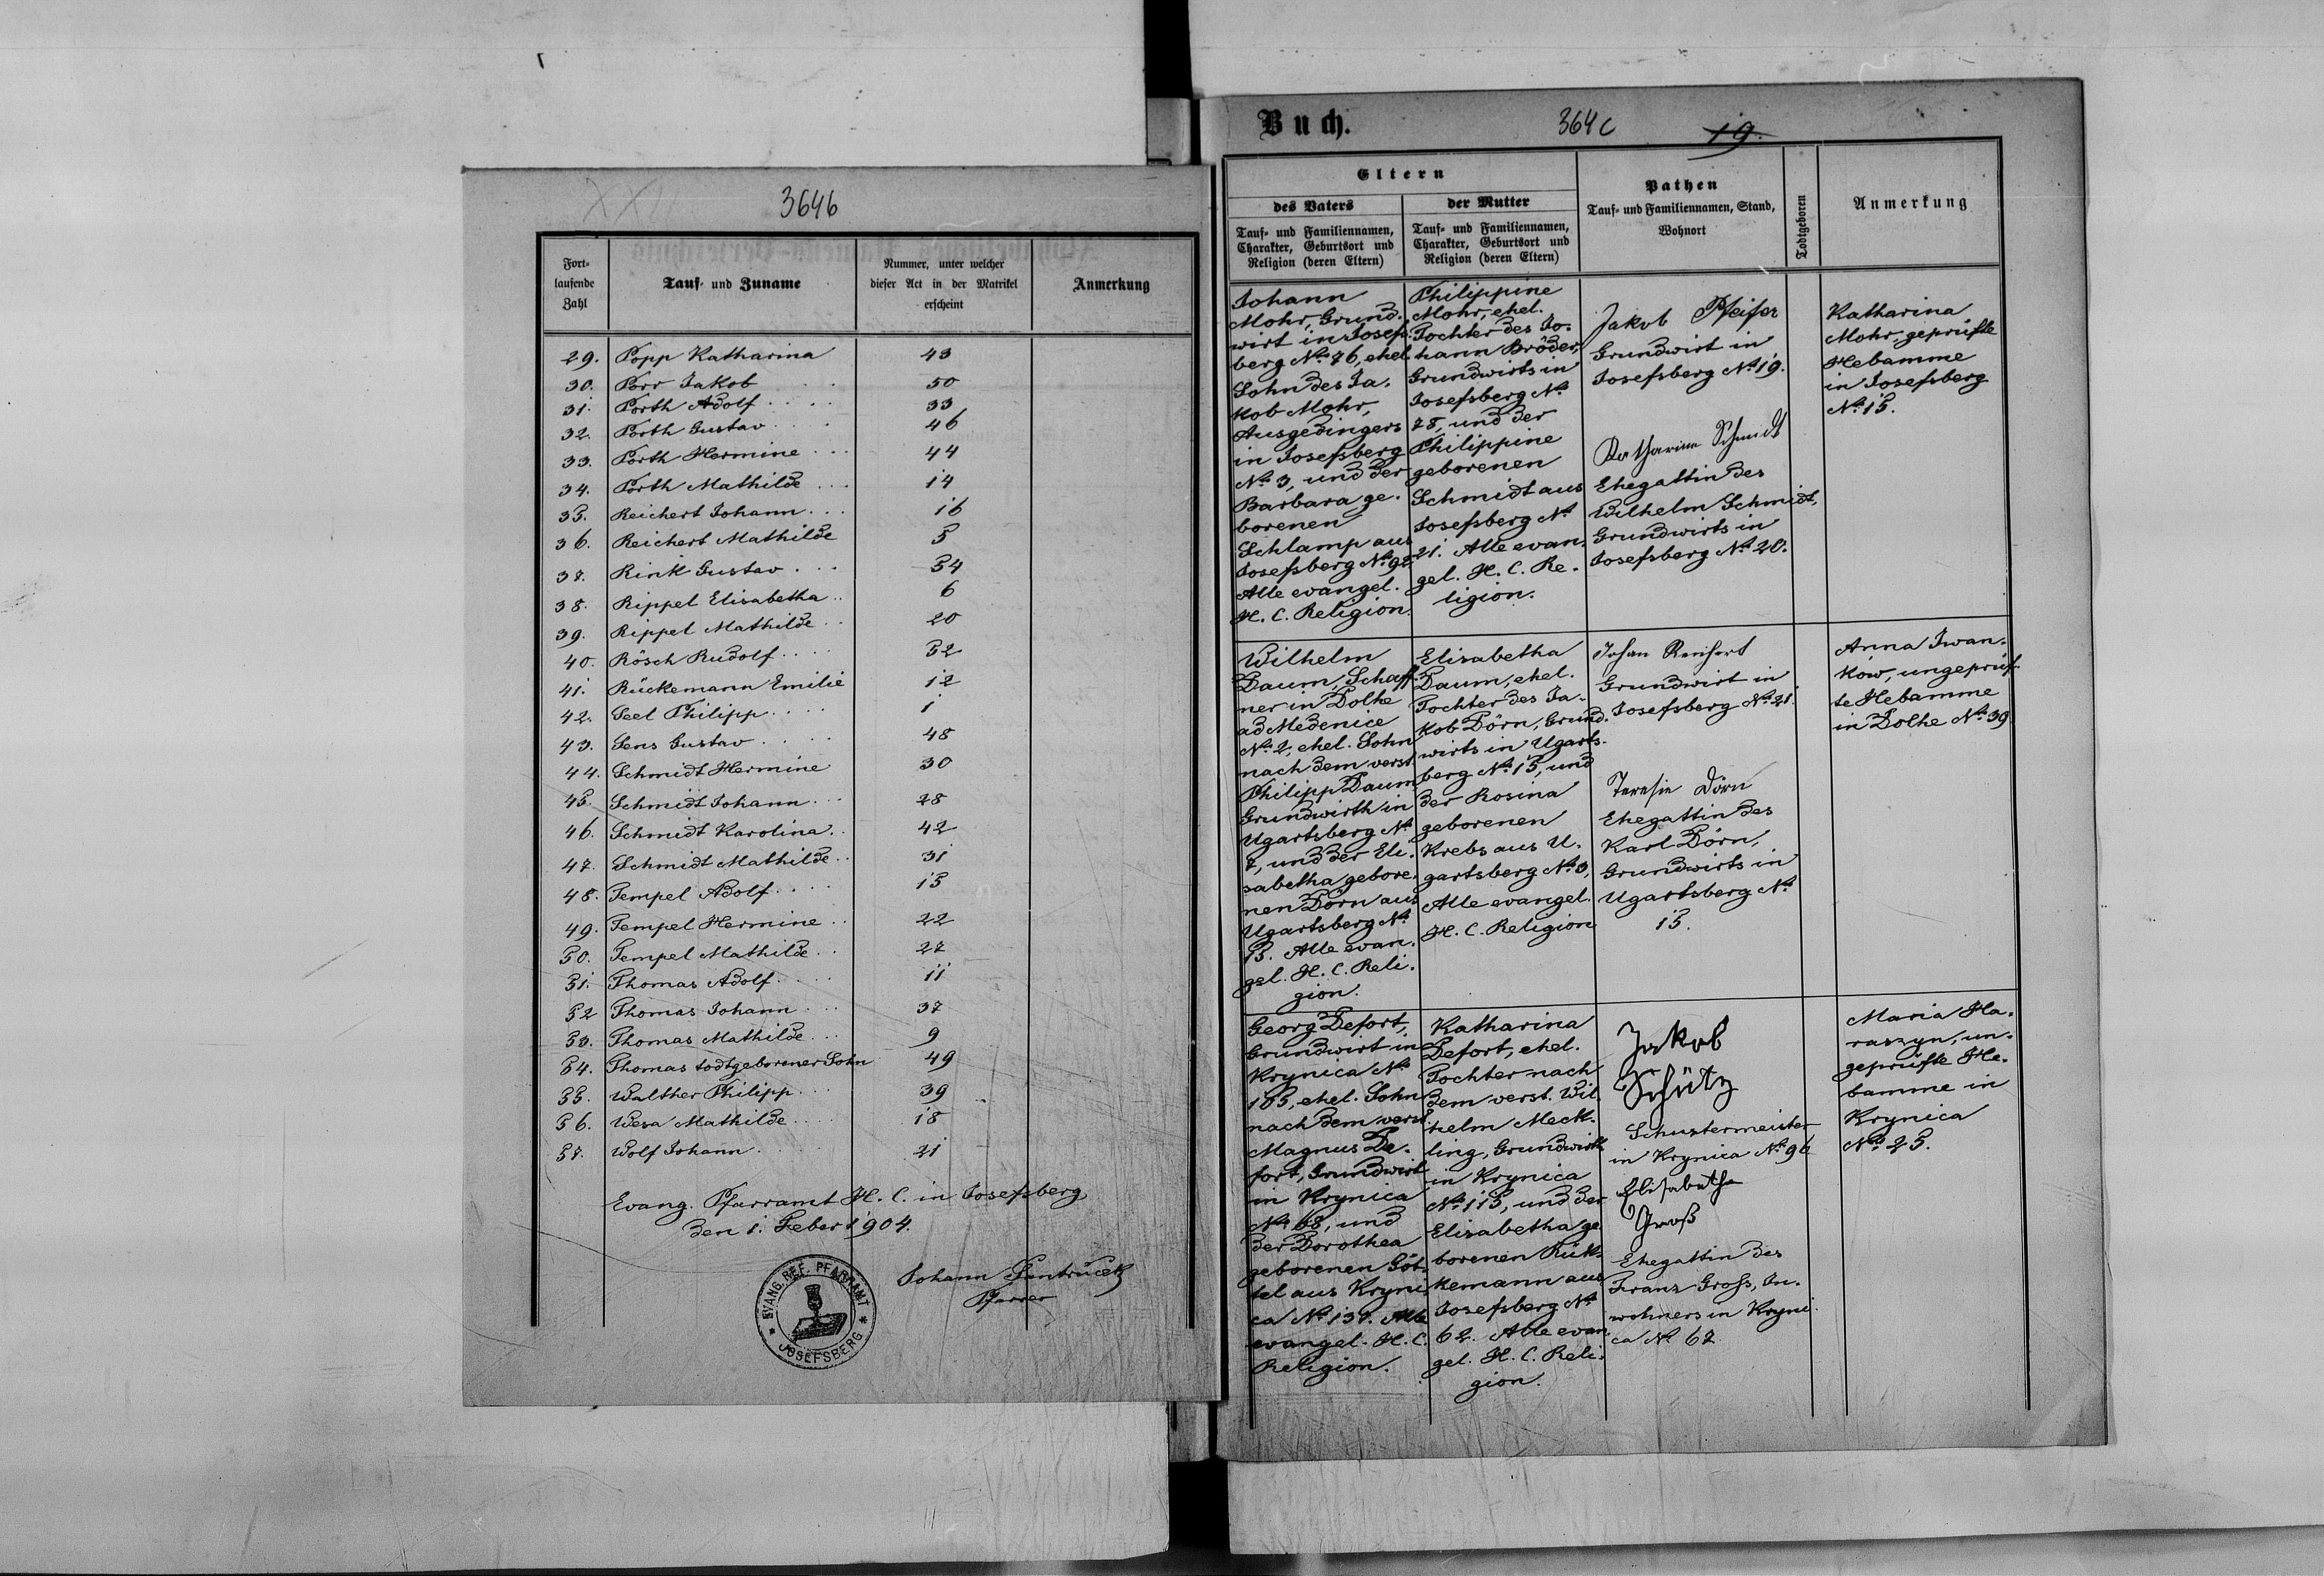 3646
Fort-
laufende
Zahl
Tauf- und Zuname
Nummer, unter welcher
dieser Act in der Matrikel
erscheint
Anmerkung
29. Popp Katharina 43
30. Porr Jakob 50
31. Porth Adolf 33
32. Porth Gustav 46
33. Porth Hermine 44
34. Porth Mathilde 14
35. Reichert Johann 16
36. Reichert Mathilde 5
37. Rink Gustav 54
38. Rippel Elisabetha 6
39. Rippel Mathilde 20
40. Rösch Rudolf 52
41. Rückemann Emilie 12
42. Seel Philipp 1
43. Sens Gustav 48
44. Schmidt Hermine 30
45. Schmidt Johann 28
46. Schmidt Karolina 42
47. Schmidt Mathilde 31
48. Tempel Adolf 15
49. Tempel Hermine 22
50. Tempel Mathilde 27
51. Thomas Adolf 11
52 Thomas Johann 37
53. Thomas Mathilde 9
54. Thomas todtgeborener Sohn 49
55. Walther Philipp 39
56. Wesa Mathilde 18
57. Wolf Johann 21
Evang. Pfarramt H. C. in Josefsberg
den 1. Feber 1904.
EVANG. REF. PFARRAMT
* JOSEFSBERG *
Johann
Pfarrer
Buch.
364c
19.
Eltern
des Vaters
Tauf- und Familiennamen,
Charakter, Geburtsort und
Religion (deren Eltern)
der Mutter
Tauf- und Familiennamen,
Charakter, Geburtsort und
Religion (deren Eltern)
Pathen
Tauf- und Familiennamen, Stand,
Wohnort
Todtgeboren
Anmerkung
Johann
Mohr, Grund-
wirt in Josefs-
berg No. 76, ehel.
Sohn des Ja-
kob Mohr,
Ausgedingers
in Josefsberg
No. 3, und der
Barbara ge-
borenen
Schlamp aus
Josefsberg No. 92.
Alle evangel.
H. C. Religion.
Philippine
Mohr, ehel.
Tochter des Jo-
hann Bröder,
Grundwirts in
Josefsberg No.
78, und der
Philippine
geborenen
Schmidt aus
Josefsberg No.
21. Alle evan-
gel. H. C. Re-
ligion.
Jakob Pfeifer
Grundwirt in
Josefsberg No. 19.
Katharina Schmidt
Ehegattin des
Wilhelm Schmidt,
Grundwirts in
Josefsberg No. 20.
Katharina
Mohr, geprüfte
Hebamme
in Josefsberg
No. 15.
Wilhelm
Daum, Schaff-
ner in Dolhe
ad Medenice
No. 2, ehel. Sohn
nach dem verst.
Philipp Daum
Grundwirth in
Ugartsberg No.
7, und der Eli-
sabetha gebore-
nen Dörn aus
Ugartsberg No.
15. Alle evan-
gel. H. C. Reli-
gion.
Elisabetha
Daum, ehel.
Tochter des Ja-
kob Dörn, Grund-
wirts in Ugarts-
berg No. 15, und
der Rosina
geborenen
Krebs aus U-
gartsberg No. 3,
Alle evangel.
H. C. Religion
Johan Reichert
Grundwirt in
Josefsberg No. 21.
Teresie Dörn
Ehegattin des
Karl Dörn,
Grundwirts in
Ugartsberg No.
15.
Anna Iwan-
kow, ungeprüf-
te Hebamme
in Dolhe No. 39
Georg Defort,
Grundwirt in
Krynica No.
165, ehel. Sohn
nach dem verst.
Magnus De-
fort, Grundwirt
in Krynica
No. 68, und
der Dorothea
geborenen Göt-
tel aus Kryni-
ca No. 137. Alle
evangel. H. C.
Religion.
Katharina
Defort, ehel.
Tochter nach
dem verst. Wil-
helm Meck-
ling, Grundwirt
in Krynica
No. 115, und der
Elisabetha ge-
borenen Rük-
kemann aus
Josefsberg No.
62. Alle evan-
gel. H. C. Reli-
gion.
Jakob
Schütz
Schustermeister
in Krynica No. 96
Elisabetha
Groß
Ehegattin des
Franz Gross, In-
wohners in Kryni-
ca No. 67
Maria Ha-
raszyn, un-
geprüfte He-
bamme in
Krynica
No. 25.